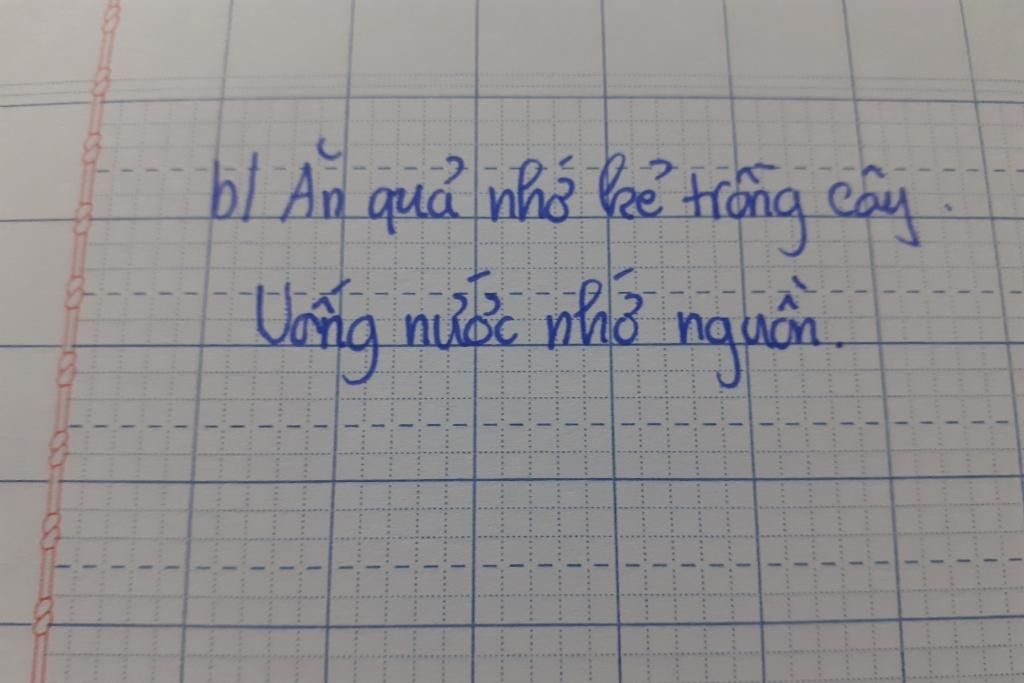 b/ Ăn quả nhớ kẻ trồng cây.
Uống nước nhớ nguồn.